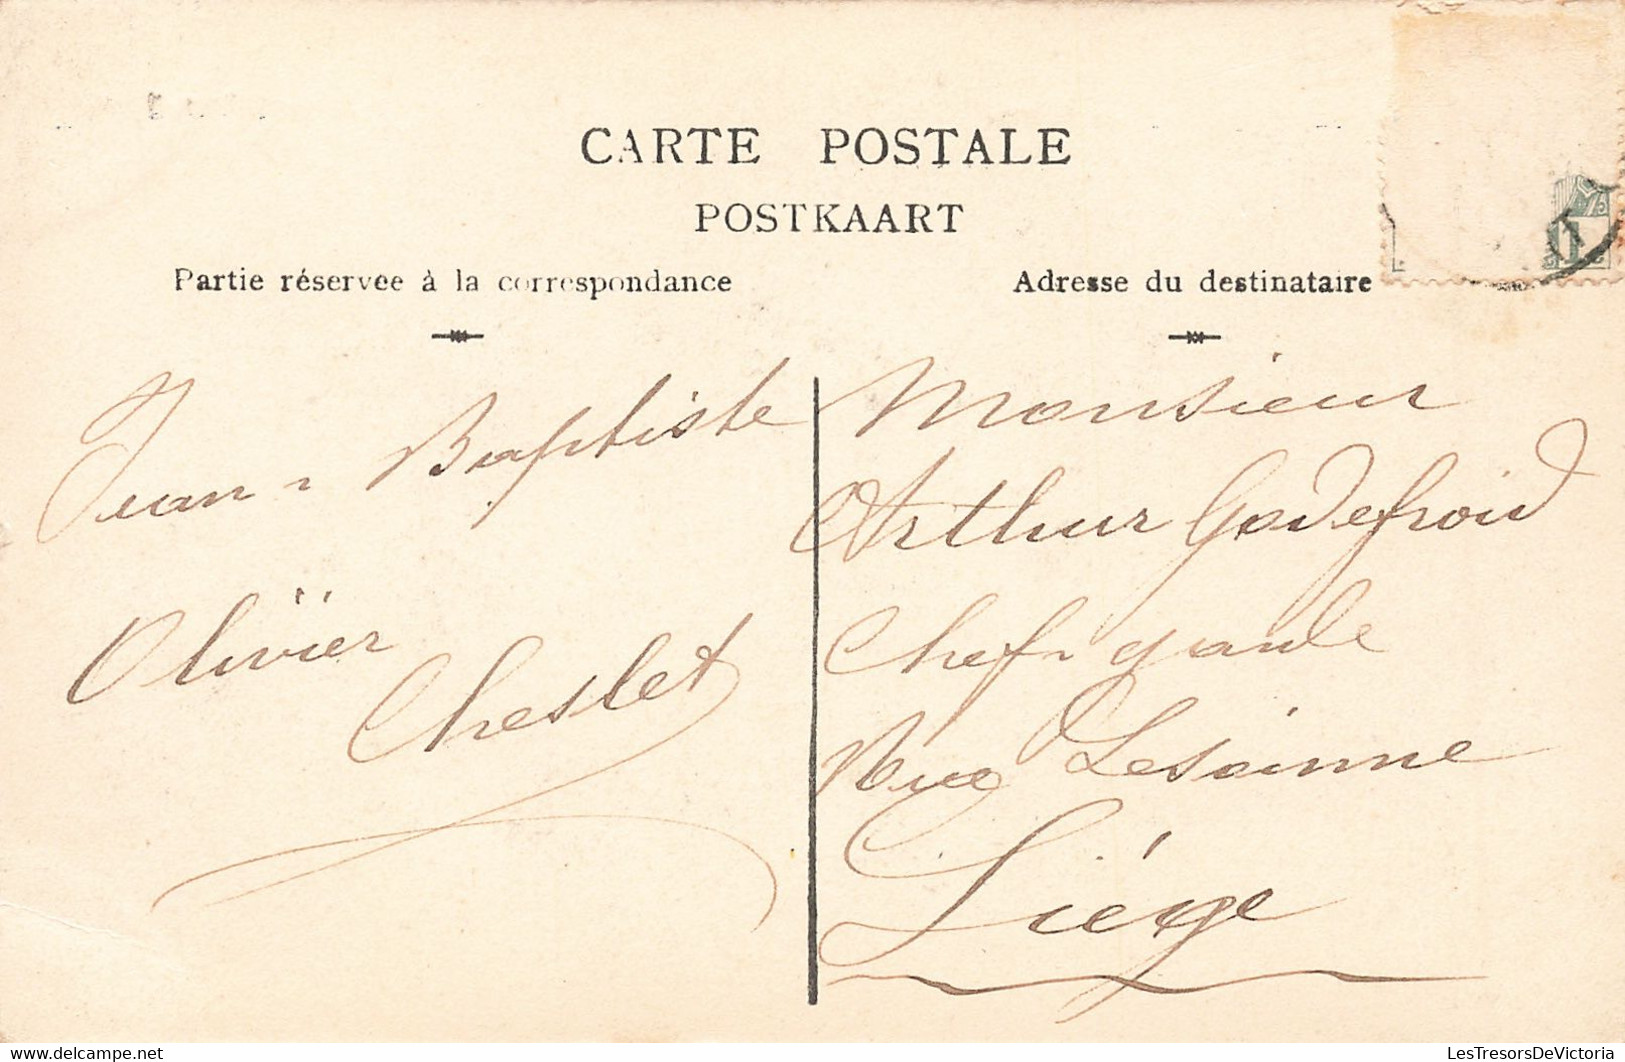 CARTE POSTALE
POSTKAART
Partie réservée à la correspondance
Adresse du destinataire
Jean-Baptiste
Olivier
Cheslet
Monsieur
Arthur Godefroid
Chef-garde
Rue Lesoinne
Liége
1
Delcampe.net
LesTresorsDeVictoria